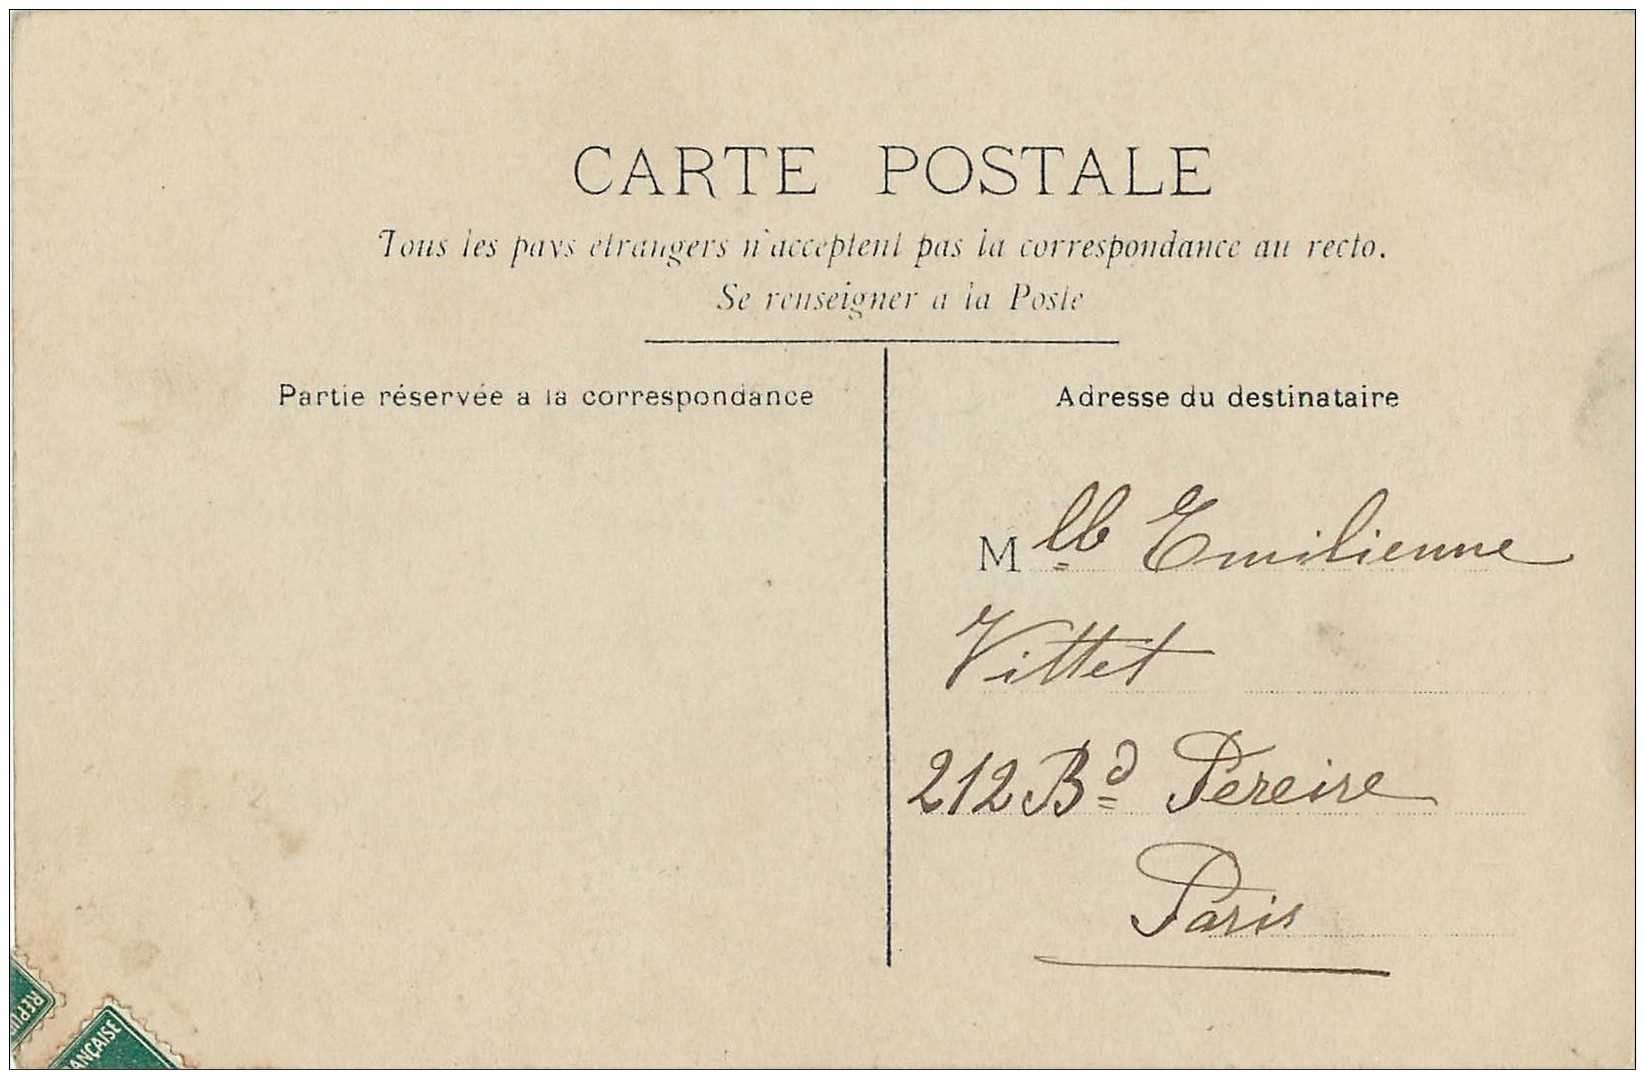 CARTE POSTALE
Tous les pays étrangers n'acceptent pas la correspondance au recto.
Se renseigner a la Poste
Partie réservée a la correspondance
Adresse du destinataire
Mlle Emilienne
Vittet
212 Bd Pereire
Paris
RÉPU
ANÇAISE